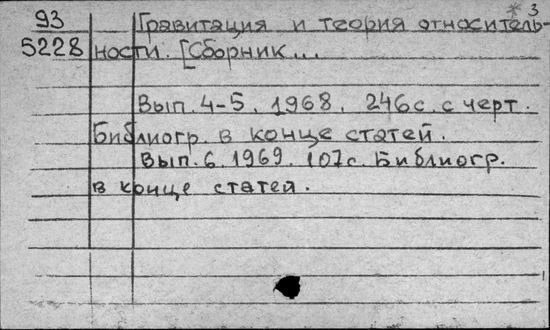 * 3
93 Гравитация и теория относитель-
5228 ности. [Сборник...
Вып. 4-5. 1968. 246с. с черт.
Библиогр. в конце статей.
Вып. 6. 1969. 107с. Библиогр.
в конце статей.